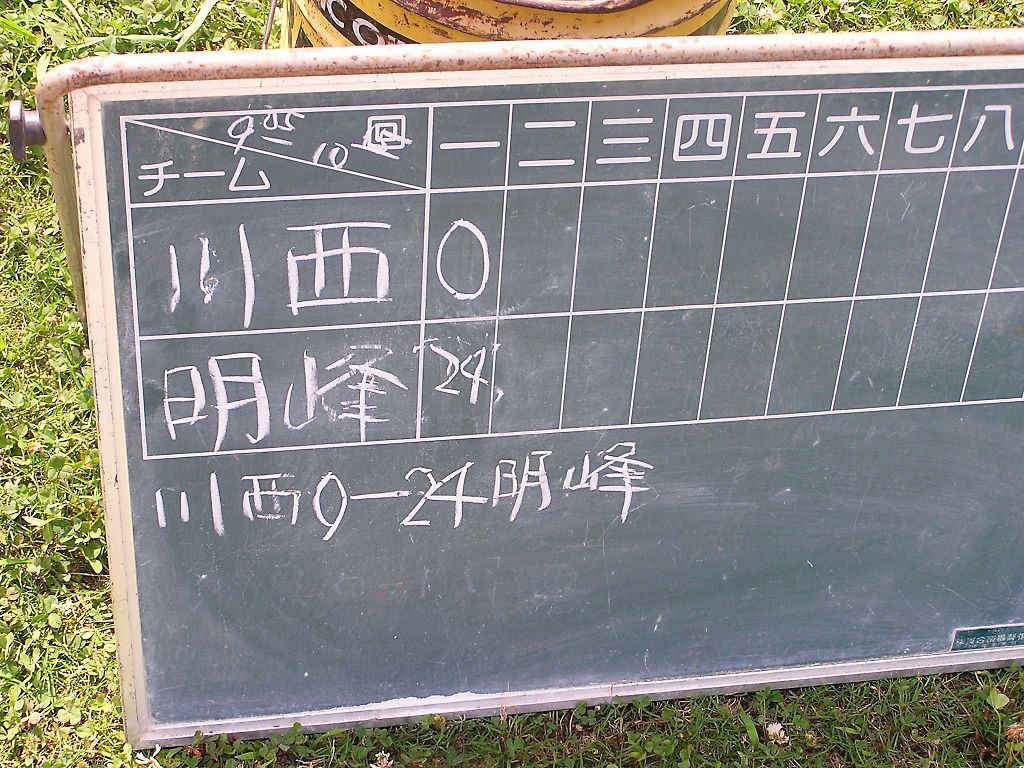 CO
9 05 10 回 一 二 三 四 五 六 七 八
チーム
川西 0
明峰 24
川西9-24明峰